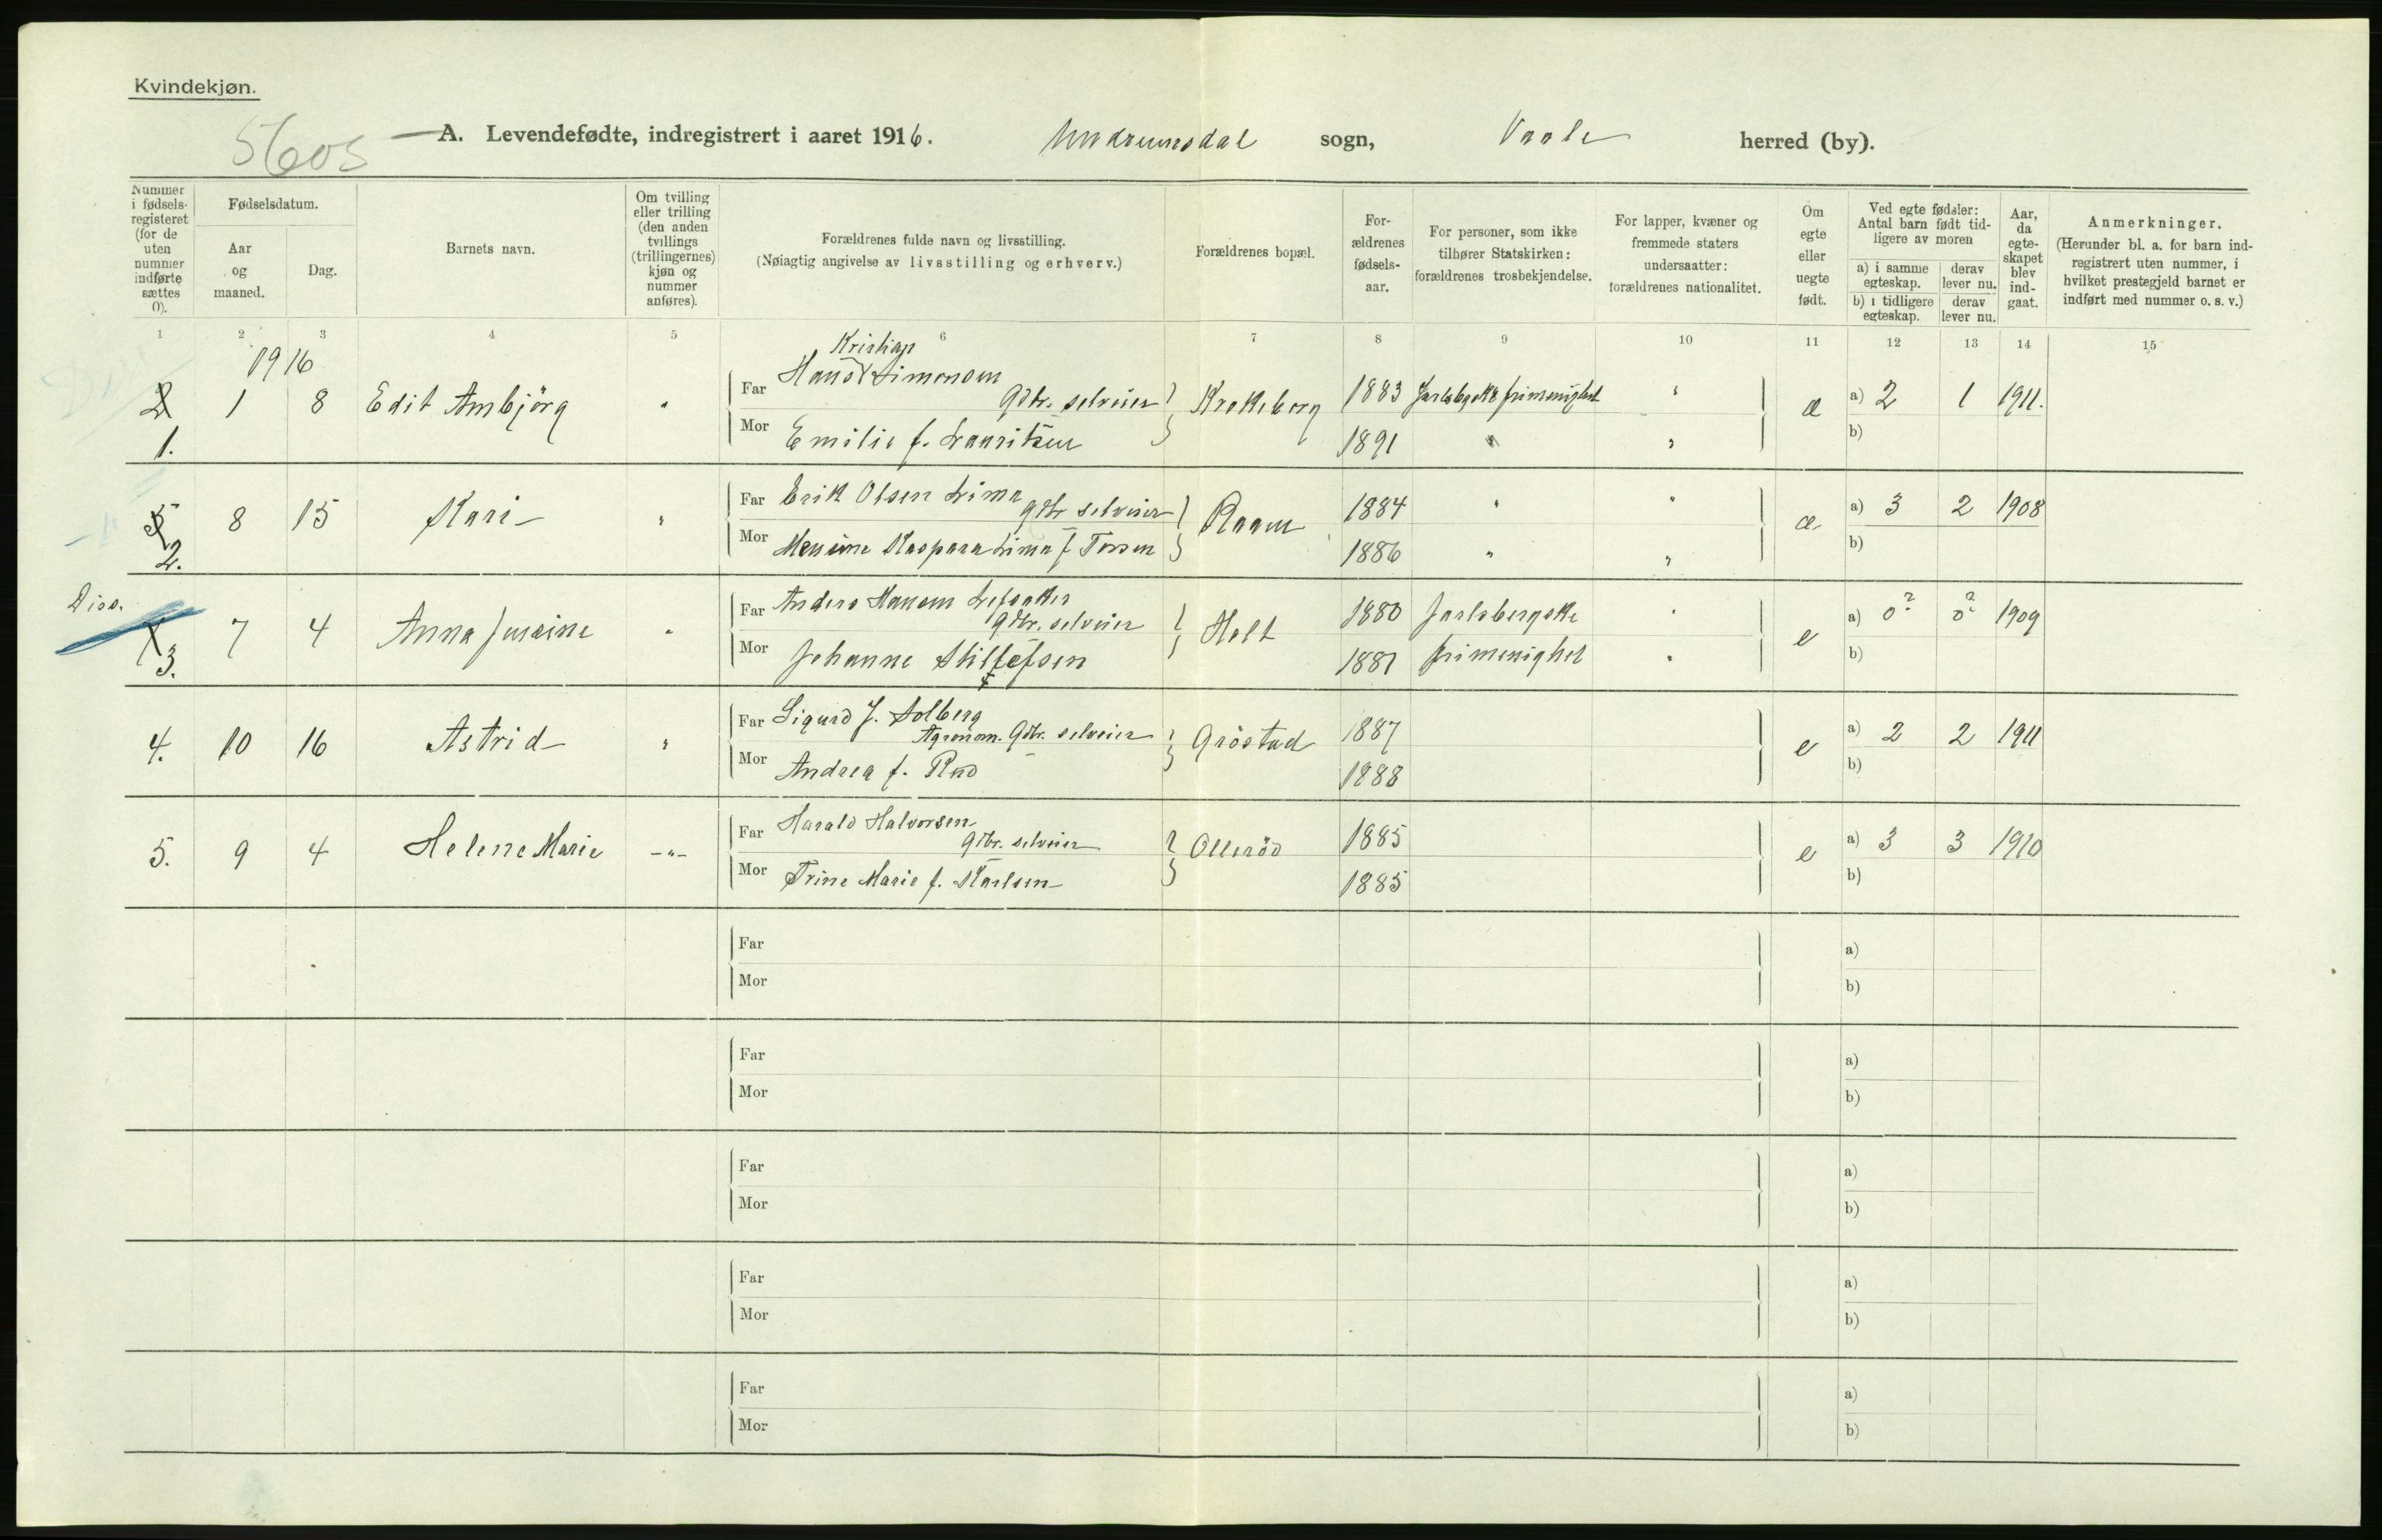 Kvindekjøn.
5605
A. Levendefødte, indregistrert i aaret 1916. Undrumsdal sogn, Vaale herred (by).
Nummer i fødsels-registeret (for de uten nummer indførte sættes 0).
Fødselsdatum.
Aar og maaned.
Dag.
Barnets navn.
Om tvilling eller trilling (den anden tvillings (trillingernes) kjøn og nummer anføres).
Forældrenes fulde navn og livsstilling.
(Nøiagtig angivelse av livsstilling og erhverv.)
Forældrenes bopæl.
For-ældrenes fødsels-aar.
For personer, som ikke tilhører Statskirken: forældrenes trosbekjendelse.
For lapper, kvæner og fremmede staters undersaatter: forældrenes nationalitet.
Om egte eller uegte født.
Ved egte fødsler: Antal barn født tid-ligere av moren
a) i samme egteskap. derav lever nu.
b) i tidligere egteskap. derav lever nu.
Aar, da egte-skapet blev ind-gaat.
Anmerkninger.
(Herunder bl. a. for barn ind-registrert uten nummer, i hvilket prestegjeld barnet er indført med nummer o. s. v.)
1 2 3 4 5 6 7 8 9 10 11 12 13 14 15
1916
Kristian
2 1 8 Edit Ambjörg " Far Hans Simensen Gbr. selveier Krokeborg 1883 Jarlsbgske frimenighet " æ a) 2 1 1911.
1. Mor Emilie f. Lauritsen 1891 " " b)
5 8 15 Kari " Far Erik Olsen Lima Gbr selveier Raam 1884 " " æ a) 3 2 1908
2. Mor Kaspara Lima f 1886 " " b)
Diss.
7 4 Anna " Far Anders Hansen Gbr. selveier Holt 1880 Jarlsbergske " e a) 0? 0? 1909
3. Mor Johanne 1881 frimenighet " b)
4. 10 16 Astrid " Far Sigurd J. Solberg Agronom. Gbr. selveier Gröstad 1887 e a) 2 2 1911
Mor Andrea f. Rud 1888 b)
5. 9 4 Helene Marie -"- Far Harald Halvorsen Gbr. selveier Olleröd 1885 e a) 3 3 1910
Mor Trine Marie f. Karlsen 1885 b)
Far a)
Mor b)
Far a)
Mor b)
Far a)
Mor b)
Far a)
Mor b)
Far a)
Mor b)